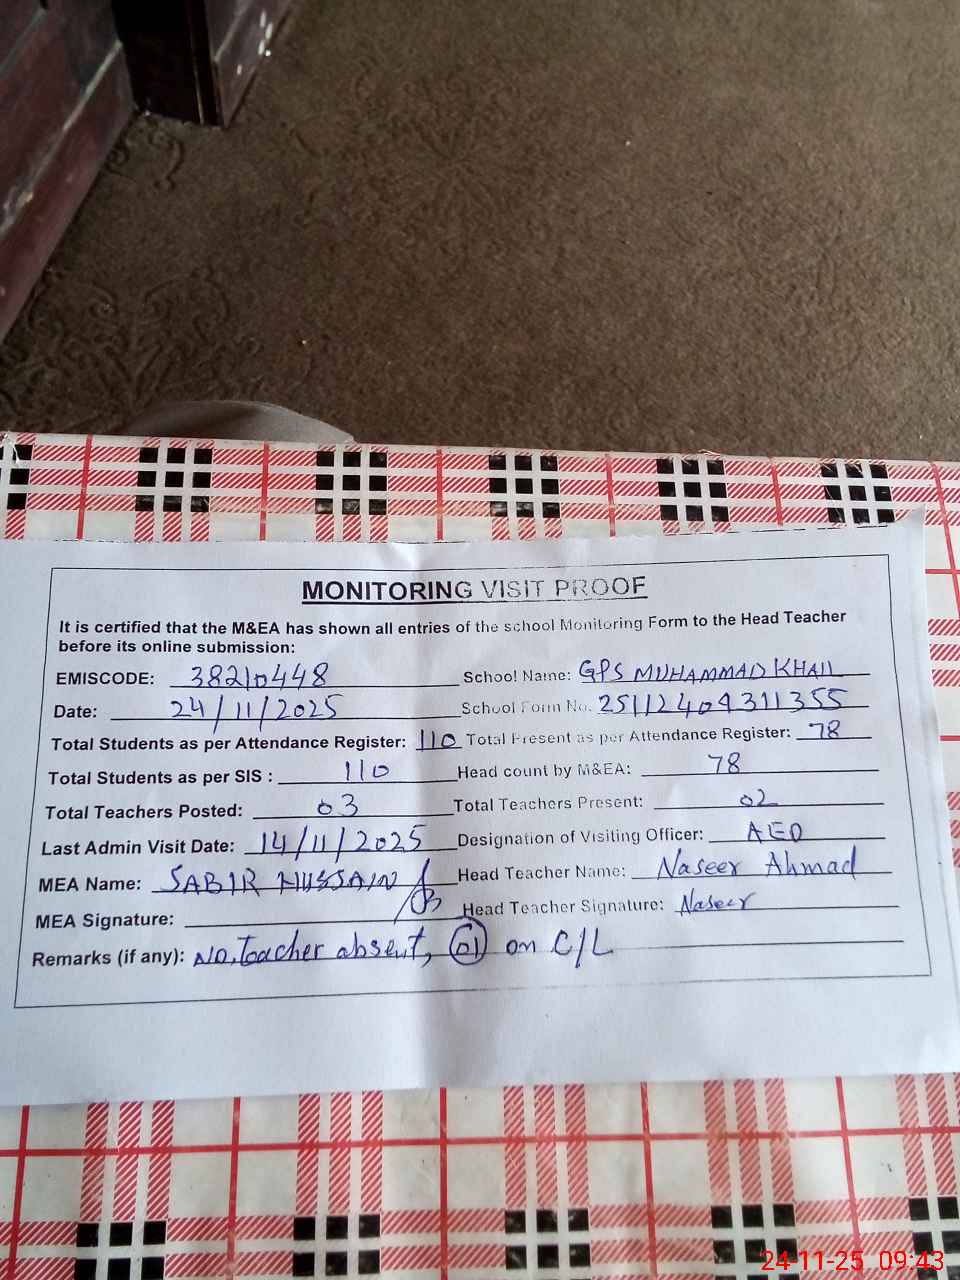 MONITORING VISIT PROOF
It is certified that the M&EA has shown all entries of the school Monitoring Form to the Head Teacher
before its online submission:
EMISCODE: 38210448 School Name: GPS MUHAMMAD KHAIL
Date: 24/11/2025 School Form No. 251124094311355
Total Students as per Attendance Register: 110 Total Present as per Attendance Register: 78
Total Students as per SIS : 110 Head count by M&EA: 78
Total Teachers Posted: 03 Total Teachers Present: 02
Last Admin Visit Date: 14/11/2025 Designation of Visiting Officer: AEO
MEA Name: SABIR HUSSAIN Head Teacher Name: Naseer Ahmad
MEA Signature: Head Teacher Signature: Naseer
Remarks (if any): No, teacher absent, 01 on C/L
24-11-25 09:43